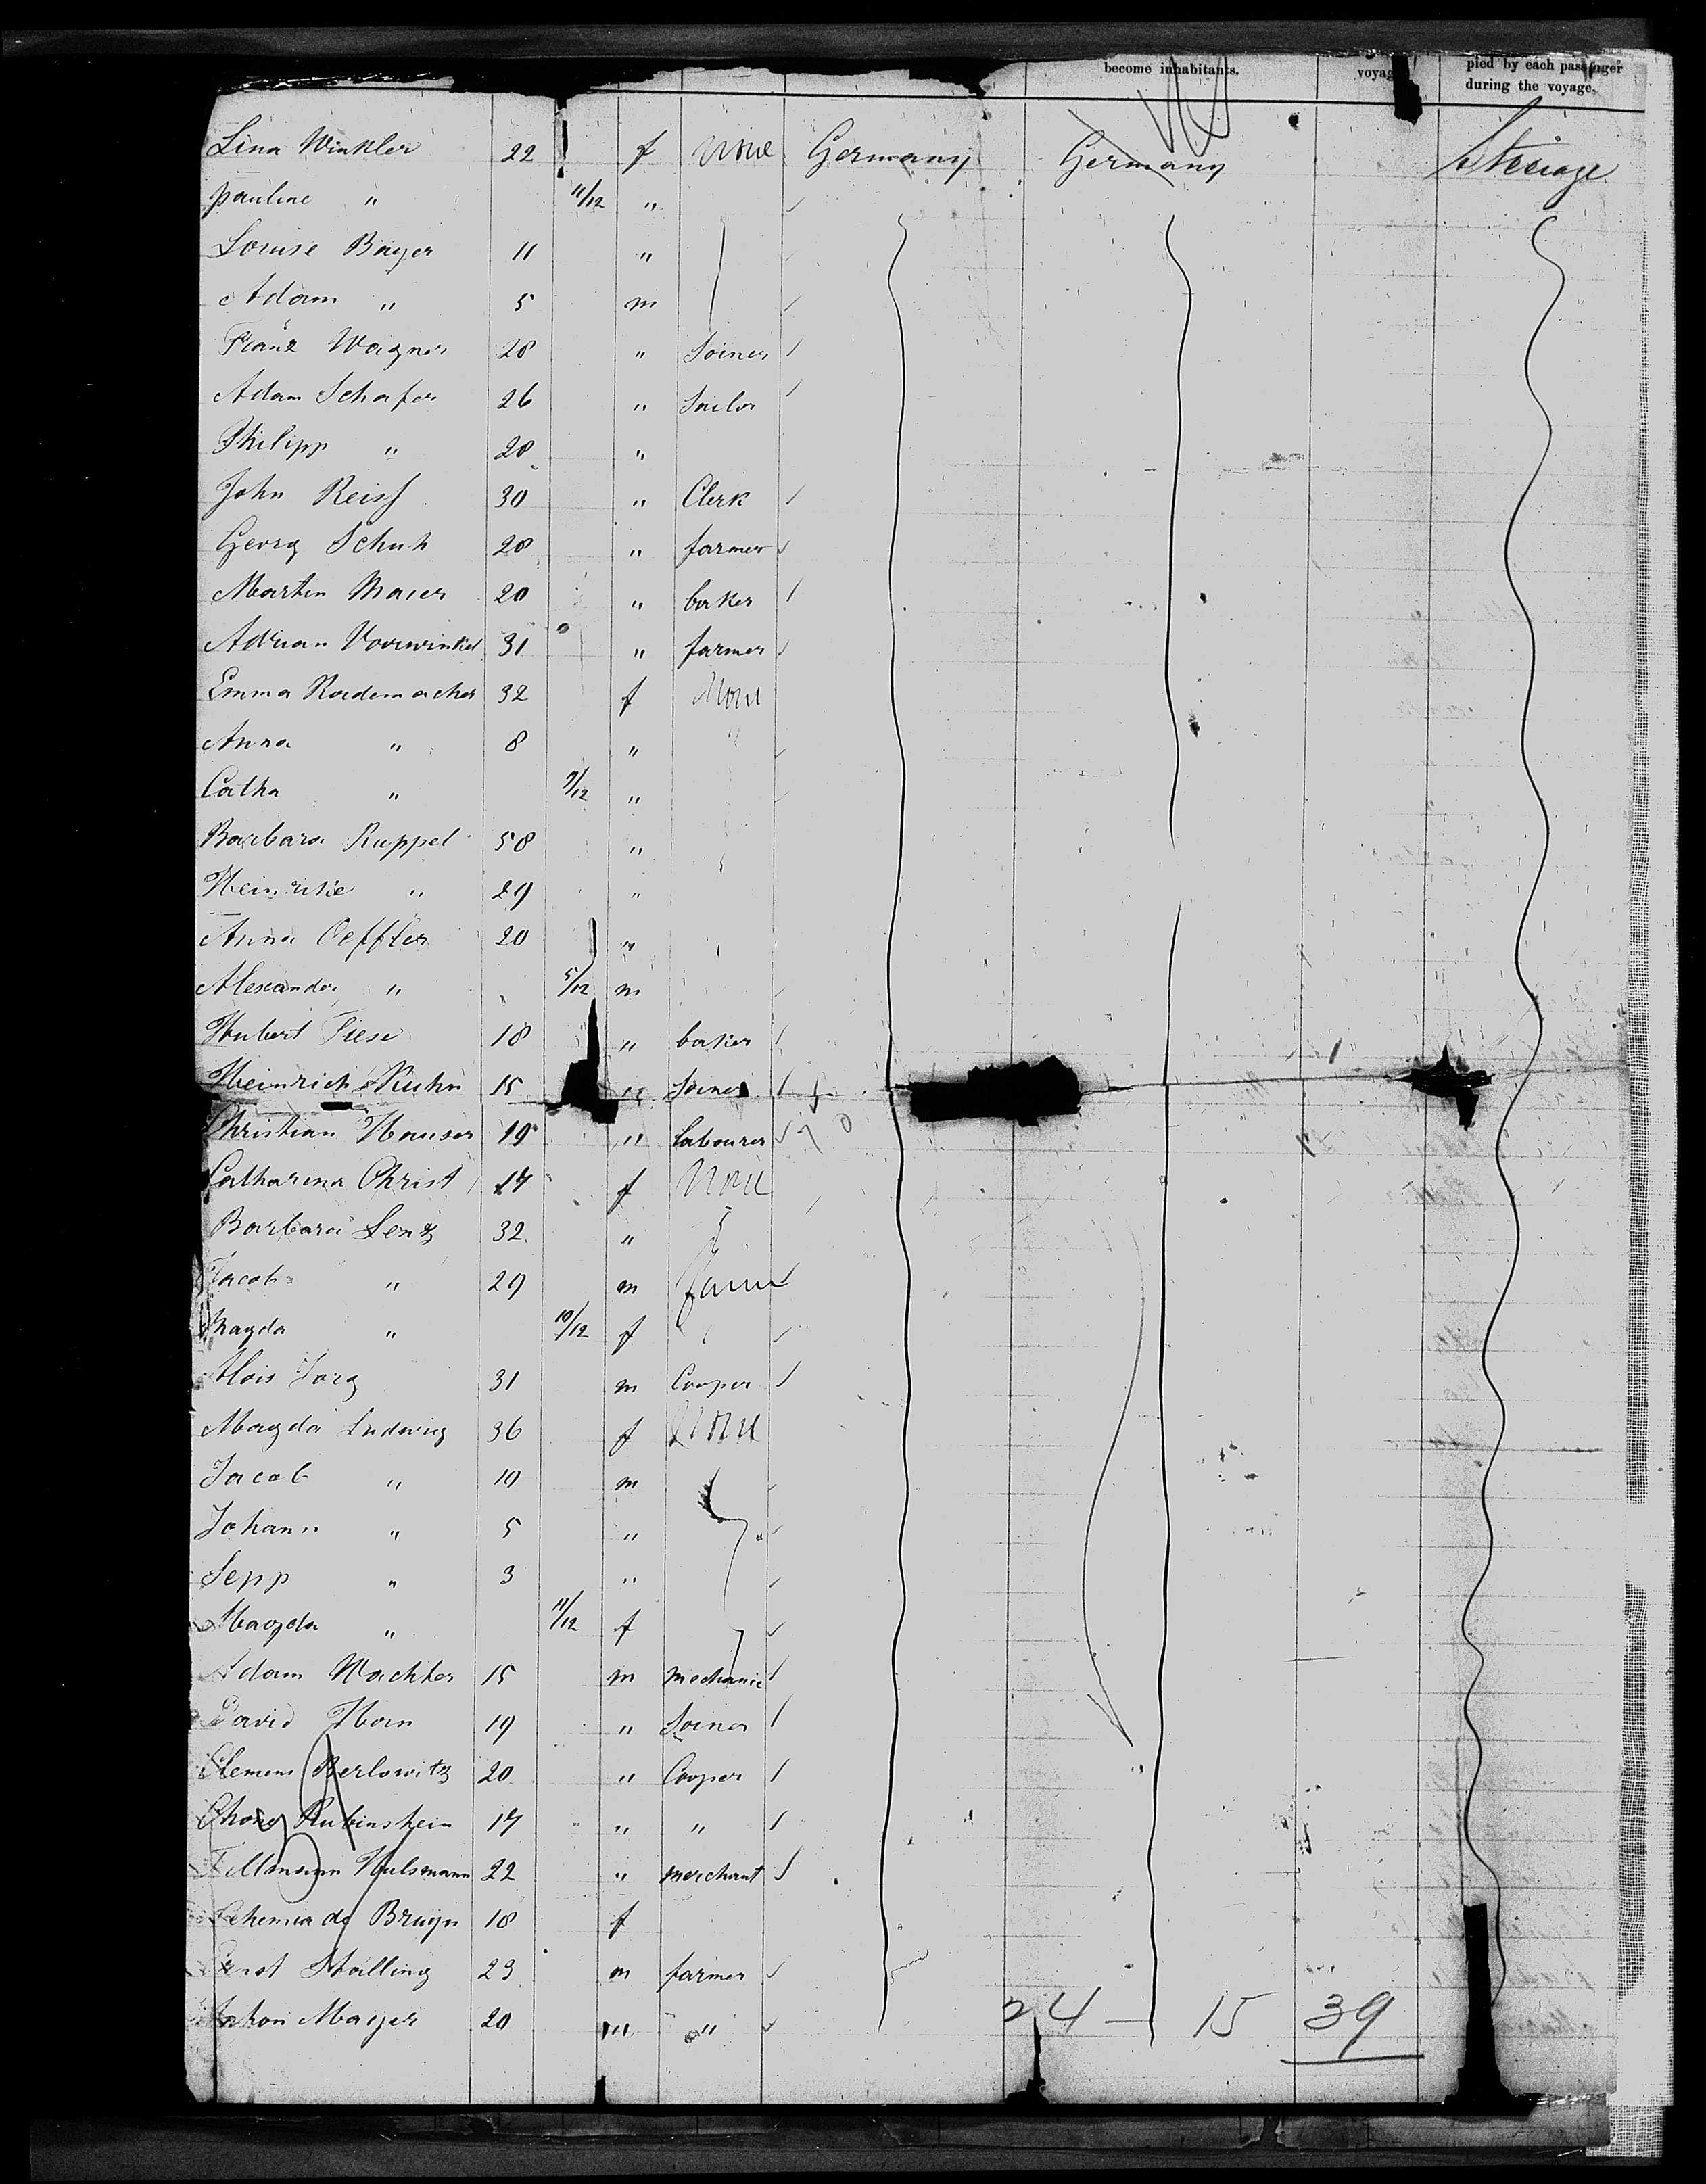 become inhabitants.
pied by each passenger
during the voyage.
Lina Winkler 22 f None Germany Germany Steerage
Pauline " 11/12 "
Louise Bayer 11 "
Adam " 5 m
Franz Wagner 28 " Joiner
Adam Schafer 26 " Sailor
Philipp " 28 "
John Reiss 30 " Clerk
Georg Schuh 28 " farmer
Martin Maier 20 " baker
Adrian Vorwinkel 31 " farmer
Emma Rademacher 32 f None
Anna " 8 "
Catha " 9/12 "
Barbara Ruppel 58 "
Heinrike " 29 "
Anna Oeffler 20 "
Alexander " 5/12 m
Hubert Fiese 18 " baker
Heinrich Kuhn 15 " Joiner
Christian Hauser 19 " labourer
Catharina Christ 17 f None
Barbara Lentz 32 "
Jacob " 29 m
Magda " 10/12 f
Alois Jorg 31 m Cooper
Magda Ludwig 36 f None
Jacob " 10 m
Johann " 5 "
Sepp " 3 "
Magda " 11/12 f
Adam Wachter 15 m mechanic
David Horn 19 " Joiner
Clemens Berlowitz 20 " Cooper
Rubinstein 17 " "
Hulsmann 22 " merchant
de Bruyn 18 f
Ernst Stalling 23 m farmer
Anton Mayer 20 " "
24 — 15 39